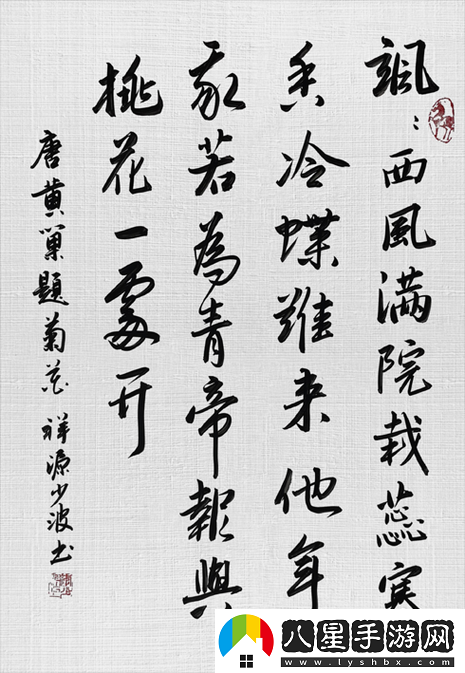 颯：西風满院栽蕊寒
香冷蝶難来他年
我若為青帝報與
桃花一處开
唐黄巢題菊花 祥源少波书
八星手游网
www.lyshbx.com